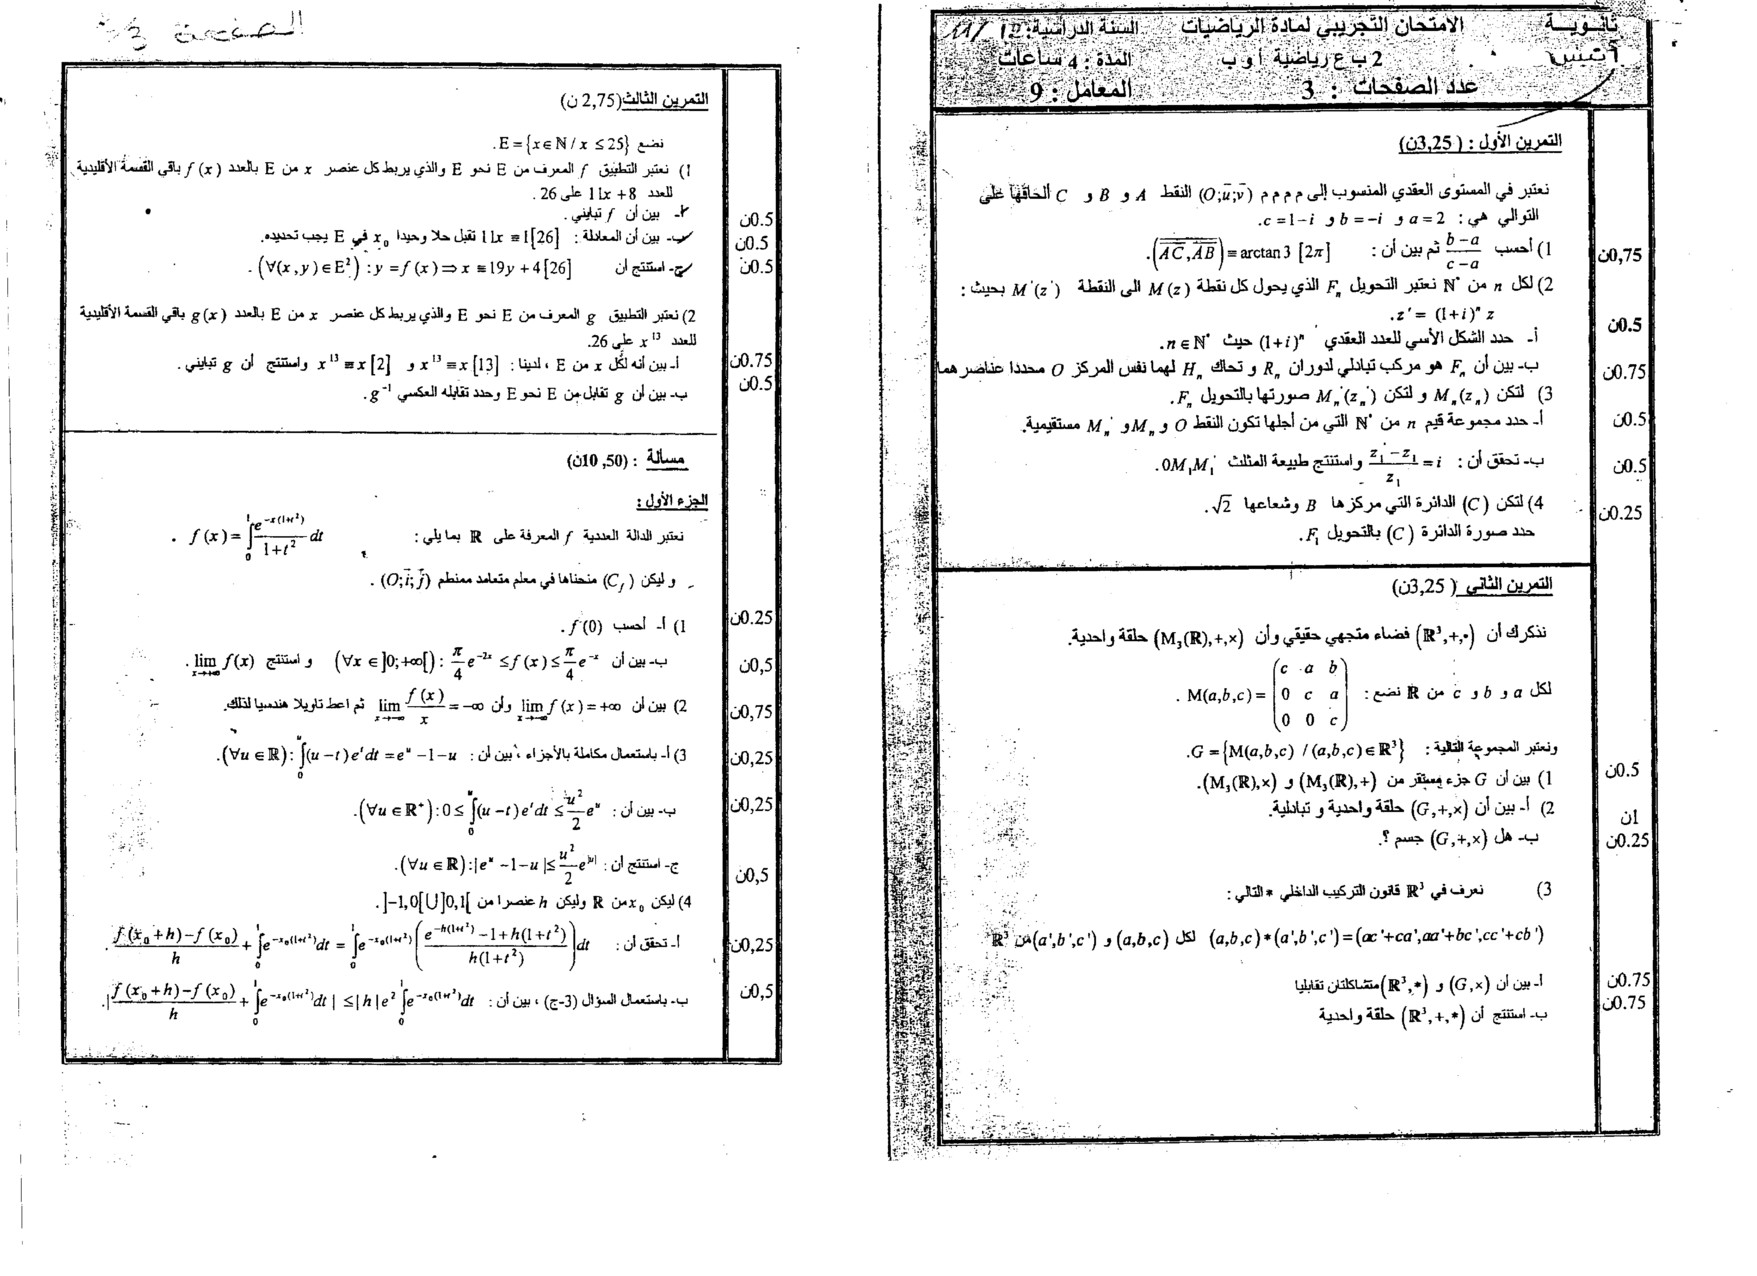 ثانوية الامتحان التجريبي لمادة الرياضيات السنة الدراسية: 11/12
2 ب ع رياضية أ و ب المدة : 4 ساعات
عدد الصفحات : 3 المعامل : 9
التمرين الأول : (3,25ن)
نعتبر في المستوى العقدي المنسوب إلى م م م م (O;u⃗;v⃗) النقط A و B و C ألحاقها على
التوالي هي: a=2 و b=-i و c=1-i.
1) أحسب (b-a)/(c-a) ثم بين أن : (AC,AB) ≡ arctan 3 [2π]. 0,75ن
2) لكل n من ℕ* نعتبر التحويل Fₙ الذي يحول كل نقطة M(z) الى النقطة M'(z') بحيث :
z' = (1+i)ⁿ z.
أ- حدد الشكل الأسي للعدد العقدي (1+i)ⁿ حيث n∈ℕ*. 0.5ن
ب- بين أن Fₙ هو مركب تبادلي لدوران Rₙ و تحاك Hₙ لهما نفس المركز O محددا عناصرهما 0.75ن
3) لتكن Mₙ(zₙ) و لتكن Mₙ'(zₙ') صورتها بالتحويل Fₙ.
أ- حدد مجموعة قيم n من ℕ* التي من أجلها تكون النقط O و Mₙ و Mₙ' مستقيمية. 0.5ن
ب- تحقق أن : (z₁'-z₁)/z₁ = i واستنتج طبيعة المثلث 0M₁M₁'. 0.5ن
4) لتكن (C) الدائرة التي مركزها B وشعاعها √2. 0.25ن
حدد صورة الدائرة (C) بالتحويل F₁.
التمرين الثاني ( 3,25ن)
نذكرك أن (ℝ³,+,•) فضاء متجهي حقيقي وأن (M₃(ℝ),+,×) حلقة واحدية.
لكل a و b و c من ℝ نضع : M(a,b,c) = (c a b ; 0 c a ; 0 0 c) .
ونعتبر المجموعة التالية : G = {M(a,b,c) /(a,b,c)∈ℝ³}.
1) بين أن G جزء مستقر من (M₃(ℝ),+) و (M₃(ℝ),×). 0.5ن
2) أ- بين أن (G,+,×) حلقة واحدية و تبادلية. 1ن
ب- هل (G,+,×) جسم ؟. 0.25ن
3) نعرف في ℝ³ قانون التركيب الداخلي * التالي :
(a,b,c)*(a',b',c')=(ac'+ca',aa'+bc',cc'+cb') لكل (a,b,c) و (a',b',c') من ℝ³
أ- بين أن (G,×) و (ℝ³,*) متشاكلتان تقابليا 0.75ن
ب- استنتج أن (ℝ³,+,*) حلقة واحدية 0.75ن
الصفحة
التمرين الثالث(2,75 ن)
نضع E = {x∈ℕ / x ≤ 25}.
1) نعتبر التطبيق f المعرف من E نحو E والذي يربط كل عنصر x من E بالعدد f(x) باقي القسمة الأقليدية
للعدد 11x+8 على 26 .
أ- بين أن f تبايني . 0.5ن
ب- بين أن المعادلة : 11x ≡ 1[26] تقبل حلا وحيدا x₀ في E يجب تحديده. 0.5ن
ج- استنتج أن (∀(x,y)∈E²) : y = f(x) ⇒ x ≡ 19y + 4[26] . 0.5ن
2) نعتبر التطبيق g المعرف من E نحو E والذي يربط كل عنصر x من E بالعدد g(x) باقي القسمة الأقليدية
للعدد x¹³ على 26.
أ- بين أنه لكل x من E ، لدينا : x¹³ ≡ x [13] و x¹³ ≡ x [2] واستنتج أن g تبايني . 0.75ن
ب- بين أن g تقابل من E نحو E وحدد تقابله العكسي g⁻¹ . 0.5ن
مسألة : (10,50ن)
الجزء الأول :
نعتبر الدالة العددية f المعرفة على ℝ بما يلي : f(x) = ∫₀¹ e^(-x(1+t²))/(1+t²) dt .
و ليكن (C_f) منحناها في معلم متعامد ممنظم (O;i⃗;j⃗) .
1) أ- أحسب f(0) . 0.25ن
ب- بين أن (∀x∈]0;+∞[) : π/4 e^(-2x) ≤ f(x) ≤ π/4 e^(-x) و استنتج lim_(x→+∞) f(x) . 0,5ن
2) بين أن lim_(x→-∞) f(x) = +∞ وأن lim_(x→-∞) f(x)/x = -∞ ثم اعط تاويلا هندسيا لذلك. 0,75ن
3) أ- باستعمال مكاملة بالأجزاء ، بين أن : (∀u∈ℝ) : ∫₀ᵘ (u-t)eᵗdt = eᵘ -1-u . 0,25ن
ب- بين أن : (∀u∈ℝ⁺) : 0 ≤ ∫₀ᵘ (u-t)eᵗdt ≤ u²/2 eᵘ . 0,25ن
ج- استنتج أن : (∀u∈ℝ) : |eᵘ -1-u| ≤ u²/2 e^|u| . 0,5ن
4) ليكن x₀ من ℝ وليكن h عنصرا من ]-1,0[∪]0,1[ .
أ- تحقق أن : (f(x₀+h)-f(x₀))/h + ∫₀¹ e^(-x₀(1+t²))dt = ∫₀¹ e^(-x₀(1+t²)) ((e^(-h(1+t²)) -1+h(1+t²))/(h(1+t²))) dt . 0,25ن
ب- باستعمال السؤال (3-ج) ، بين أن : |(f(x₀+h)-f(x₀))/h + ∫₀¹ e^(-x₀(1+t²))dt | ≤ |h| e² ∫₀¹ e^(-x₀(1+t²))dt . 0,5ن